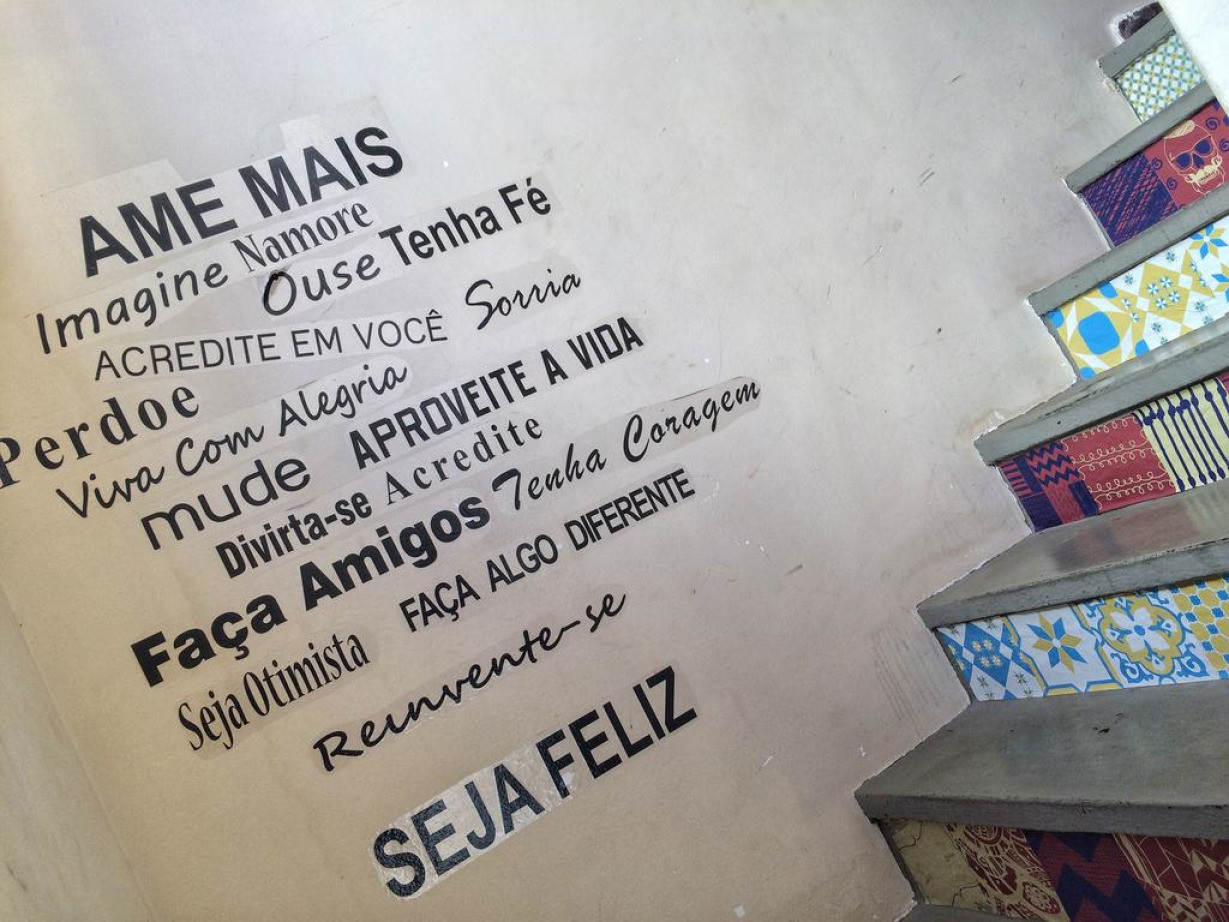 AME MAIS
Imagine Namore
Ouse Tenha Fé
ACREDITE EM VOCÊ Sorria
Perdoe
Viva Com Alegria
mude APROVEITE A VIDA
Divirta-se Acredite
Faça Amigos Tenha Coragem
Seja Otimista FAÇA ALGO DIFERENTE
Reinvente-se
SEJA FELIZ